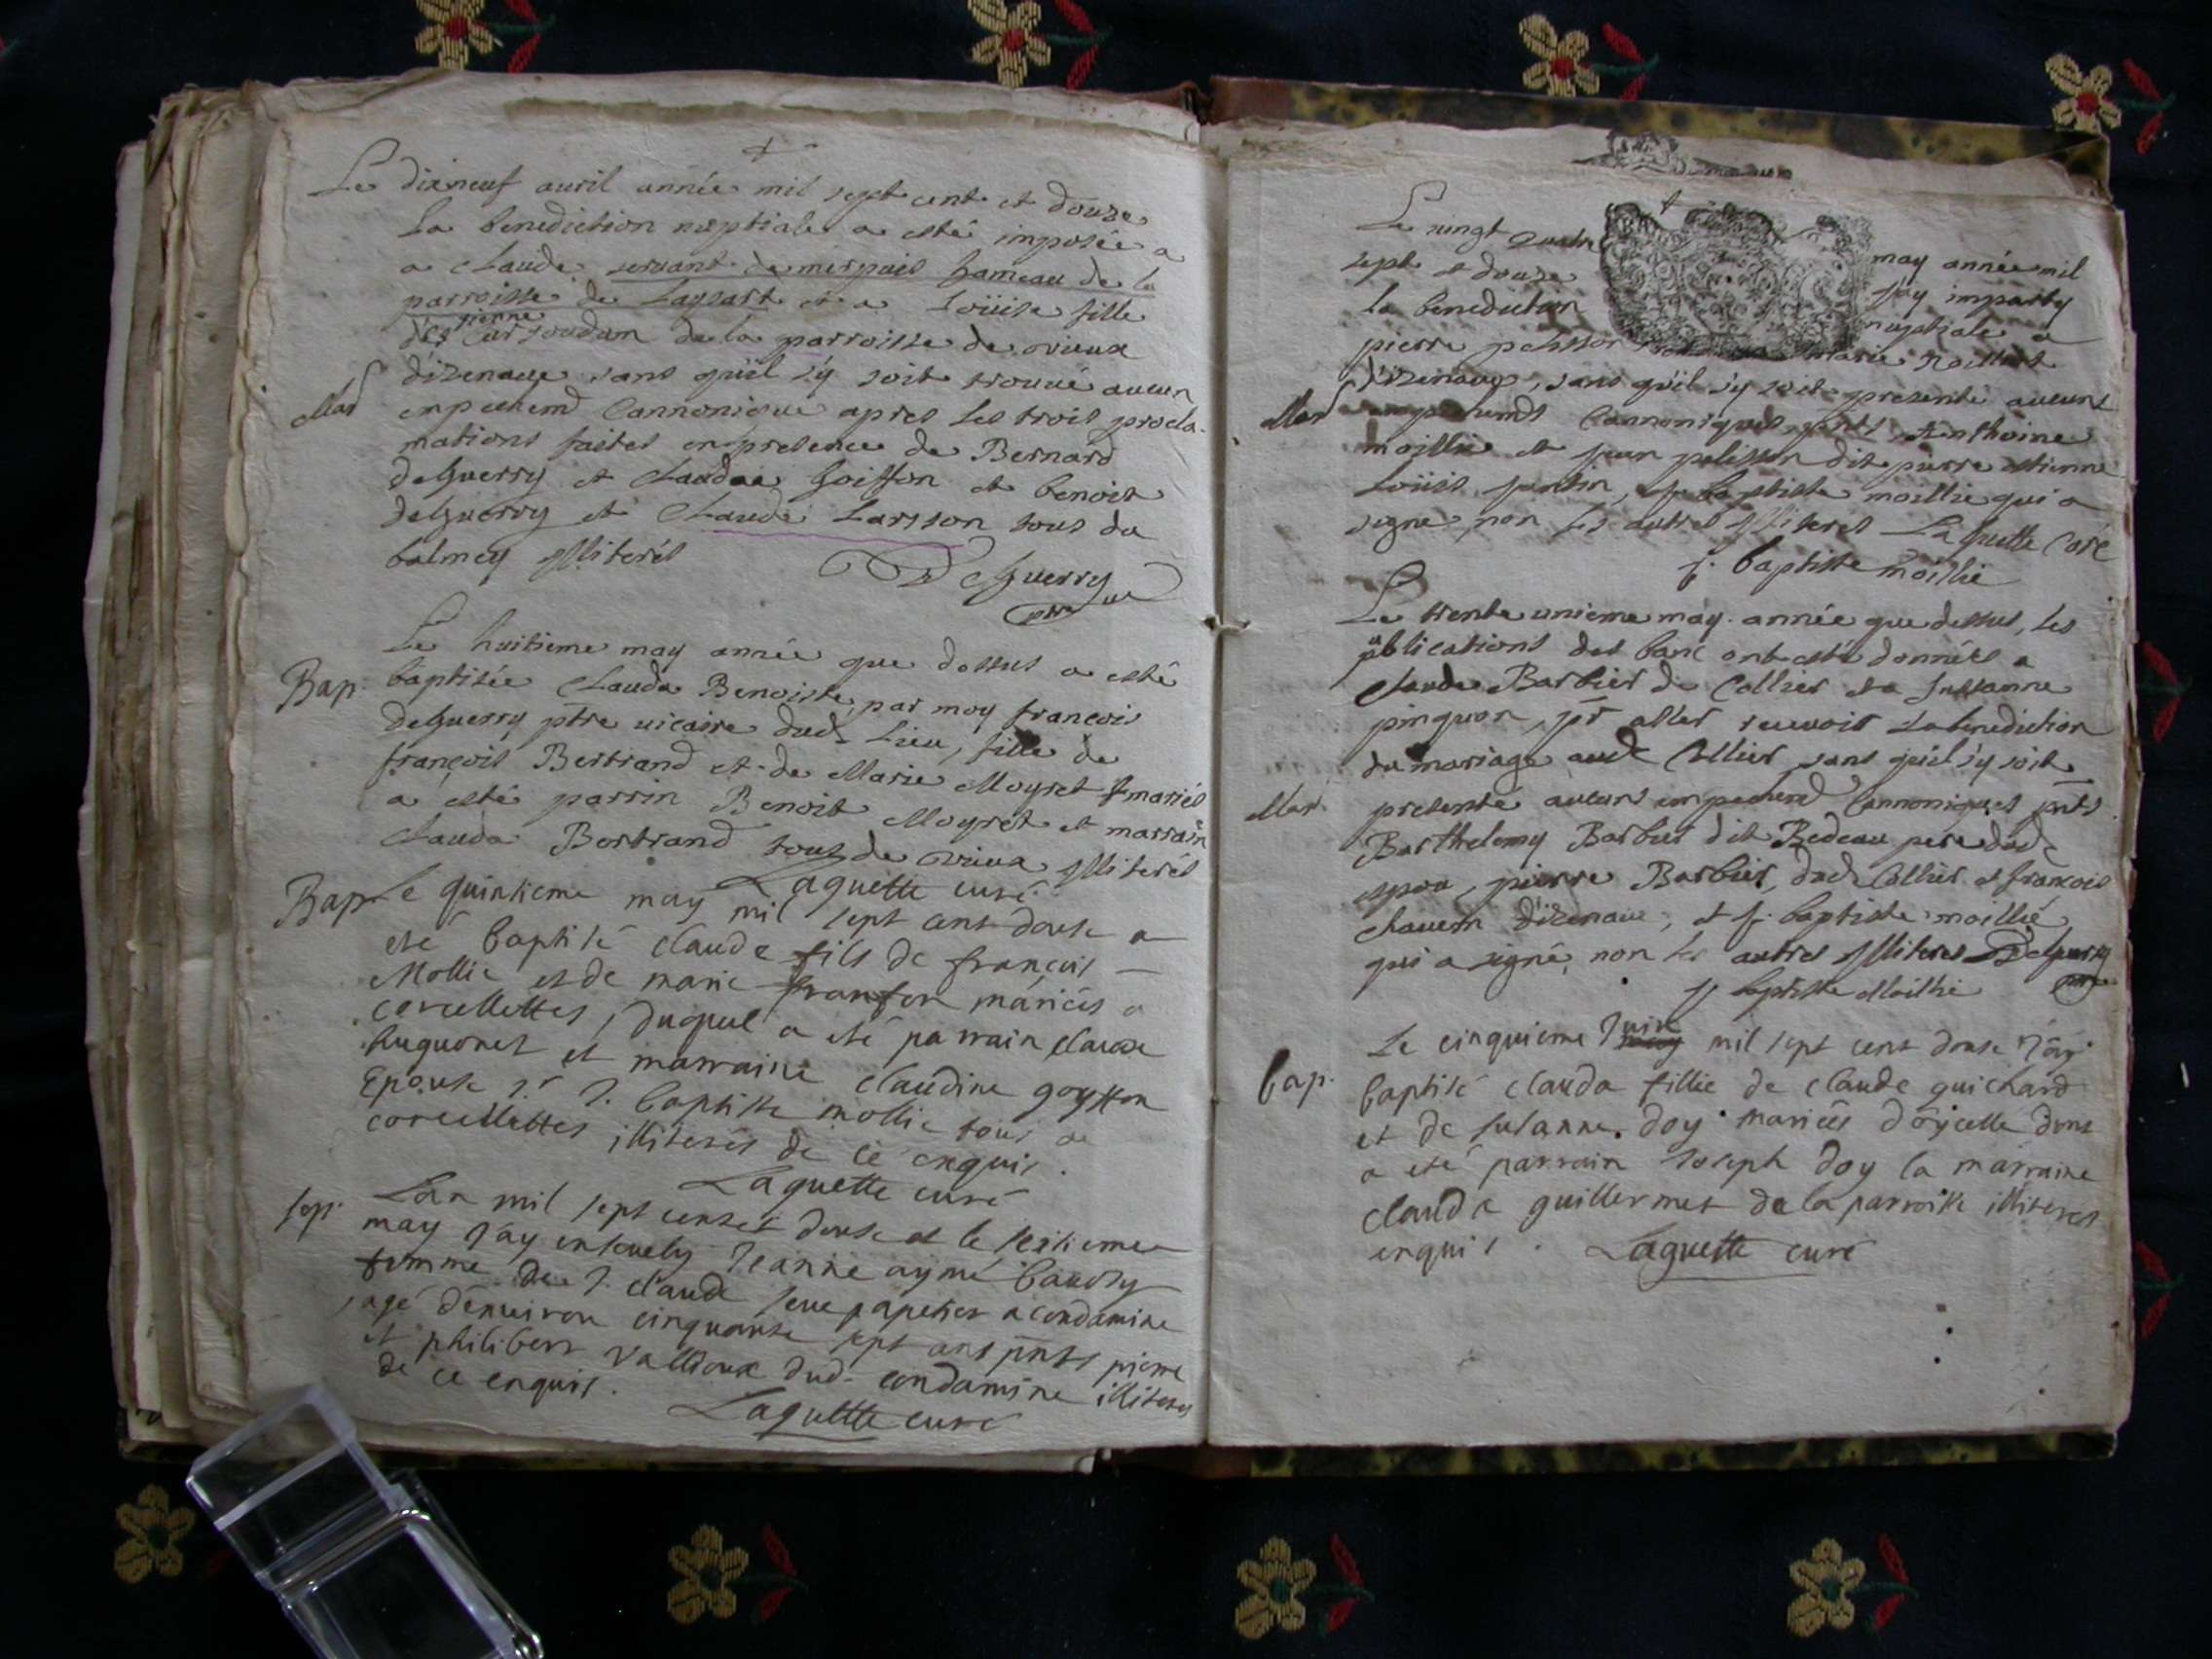 Le dixneuf auril année mil sept cent et douze
La benediction nuptiale a esté imposée a
a claude seruant de merpuis hameau de la
parroisse de Laysart et a Loüise fille
d'estienne Cursoudan de la parroisse de vieux
d'izenaue sans qu'il s'y soit trouué aucun
Mar
empechemt Cannonique apres les trois procla-
mations faites en presence de Bernard
deguerry et Claudae goiffon et benoist
deguerry et Claude Larsson tous du
balmey illiterés
Deguerry
ptre
Le huitieme may année que dessus a esté
Bap. baptisée Clauda Benoiste, par moy francois
deguerry ptre uicaire dud. Lieu, fille de
françois Bertrand et de Marie Moyret mariés
a esté parrin Benoit Moyret et marrain
Clauda Bertrand tous de vieux illiterés
Laguette curé
Bap. Le quinsieme may mil sept cent douse a
eté baptisé claude fils de françois
Mollie et de marie franson mariés a
corcellettes, duquel a eté parrain claude
huguonet et marraine claudine goyffon
Epouse J. baptiste mollie tous de
corcellettes illiterés de ce enquis.
Laguette curé
sep. Lan mil sept cents et douse et le seisieme
may J'ay enseuely Jeanne aymé baudry
femme de J. claude seue papetier a condamine
agé d'enuiron cinquante sept ans pnts pierre
et philibert Vallioux dud. condamine illiteres
de ce enquis.
Laguette curé
Le uingt quatre may année mil
sept et douze J'ay imparty
la benediction nuptiale a
pierre pelisson marie
d'izenaue, sans qu'il s'y soit presenté aucuns
Mar empechemts Cannoniques pnts Anthoine
moillie et jean pelisson dit pierre estienne
Loüis, jantin, J. baptiste moillie qui a
signe, non les autres illiteres Laguette Curé
J. baptiste moillie
Le trente unieme may année que dessus, les
publications des banc ont esté donnés a
Claude Barbier de Collier et a Susanne
pinguon, pr aller receuoir la benediction
du mariage aud Collier sans qu'il s'y soit
Mar. presenté aucuns empechemt Cannoniques pnts
Barthelemy Barbier dit Bedeau pere dud
espou, pierre Barbier, dud Collier et francois
chauein d'izenaue, et J. baptiste moillié
qui a signé, non les autres illiteres Deguerry
J baptiste Moillie ptre
Le cinquieme Juin mil sept cent douse J'ay
bap. baptisé clauda fillie de claude guichard
et de susanne doy mariés d'oycelle dont
a eté parrain Joseph doy la marraine
clauda guillermet de la parroisse illiteres
enquis. Laguette curé